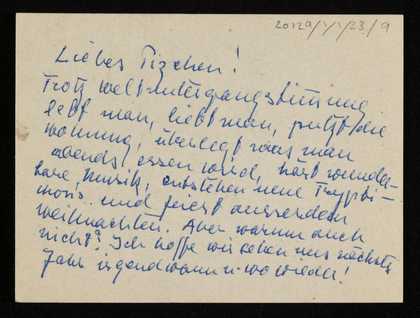 20129/1/1/23/9
Liebes Tizchen!
Trotz weltuntergangsstimmung
lebt man, liebt man, putzt die
wohnung, überlegt was man
abends essen wird, hört wunder-
bare Musik, entstehen neue
und feiert ausserdem
weihnachten. Aber warum auch
nicht? Ich hoffe wir sehen uns nächstes
Jahr irgendwann u. wo wieder!